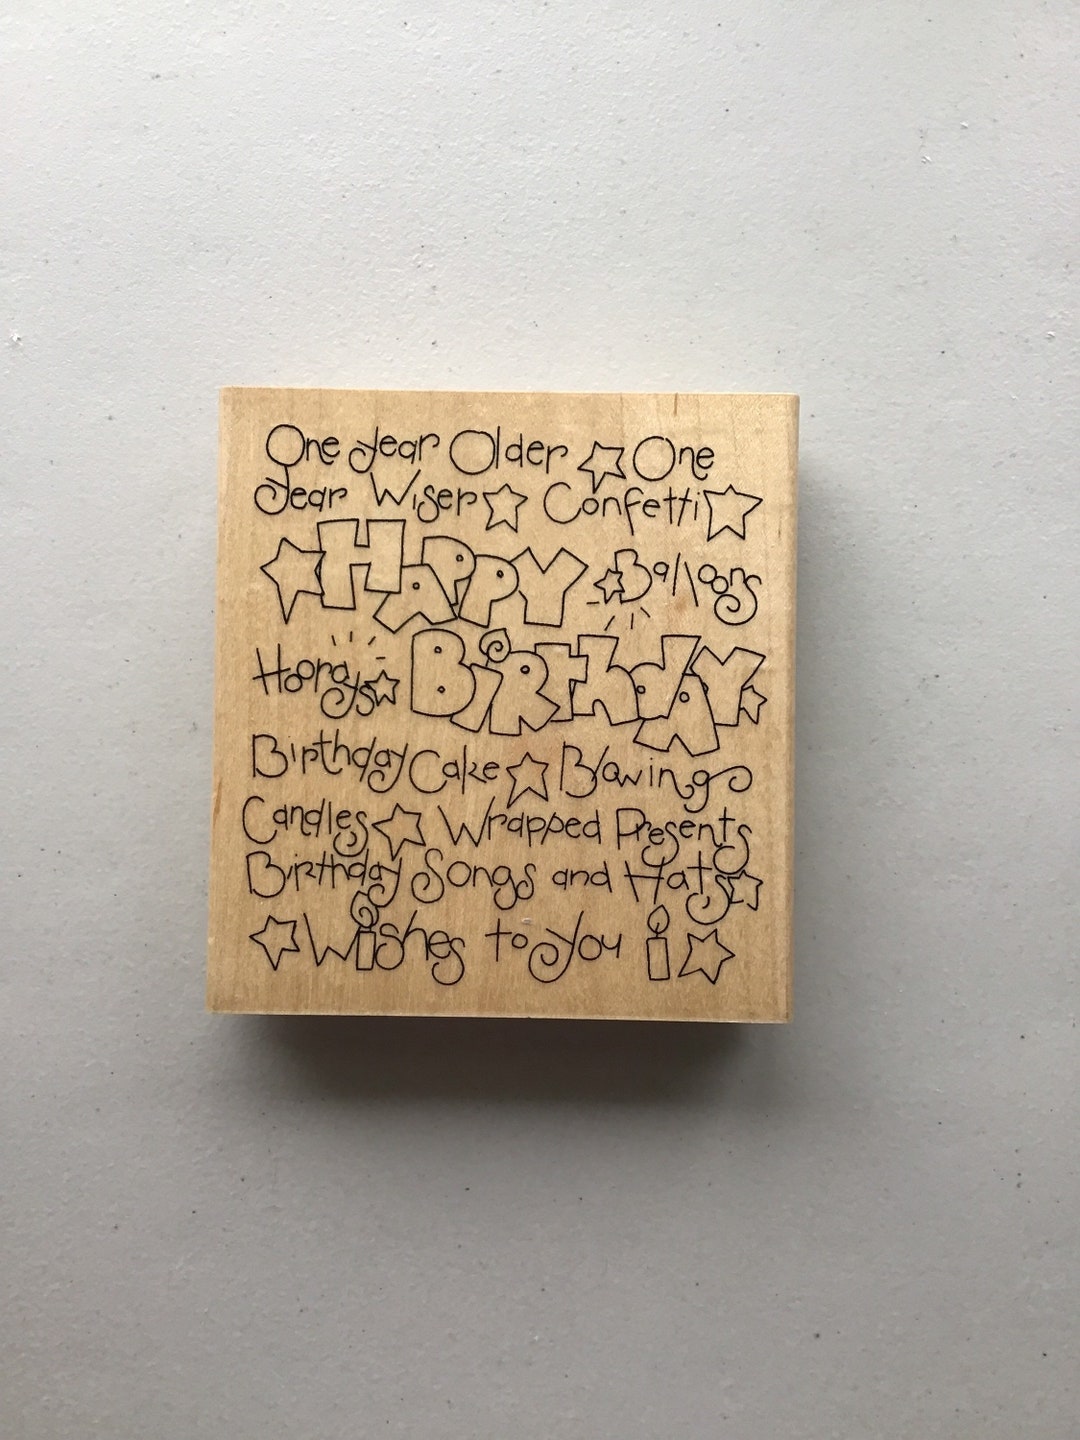 One year Older One
year Wiser Confetti
HAPPY Balloons
Hoorays BiRthdAY
Birthday Cake Blowing
Candles Wrapped Presents
Birthday Songs and Hats
Wishes to you